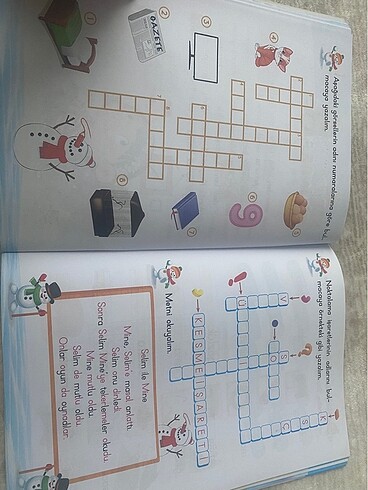 Aşağıdaki görsellerin adını numaralarına göre bul-
macaya yazalım.
1
2
GAZETE
3
4
5
6
9
7
8
Noktalama işaretlerinin adlarını bul-
macaya örnekteki gibi yazalım.
KESMEİŞARETİ
Metni okuyalım.
Selim ile Mine
Mine, Selim'e masal anlattı.
Selim onu dinledi.
Sonra Selim Mine'ye tekerlemeler okudu.
Mine mutlu oldu.
Selim de mutlu oldu.
Onlar oyun da oynadılar.